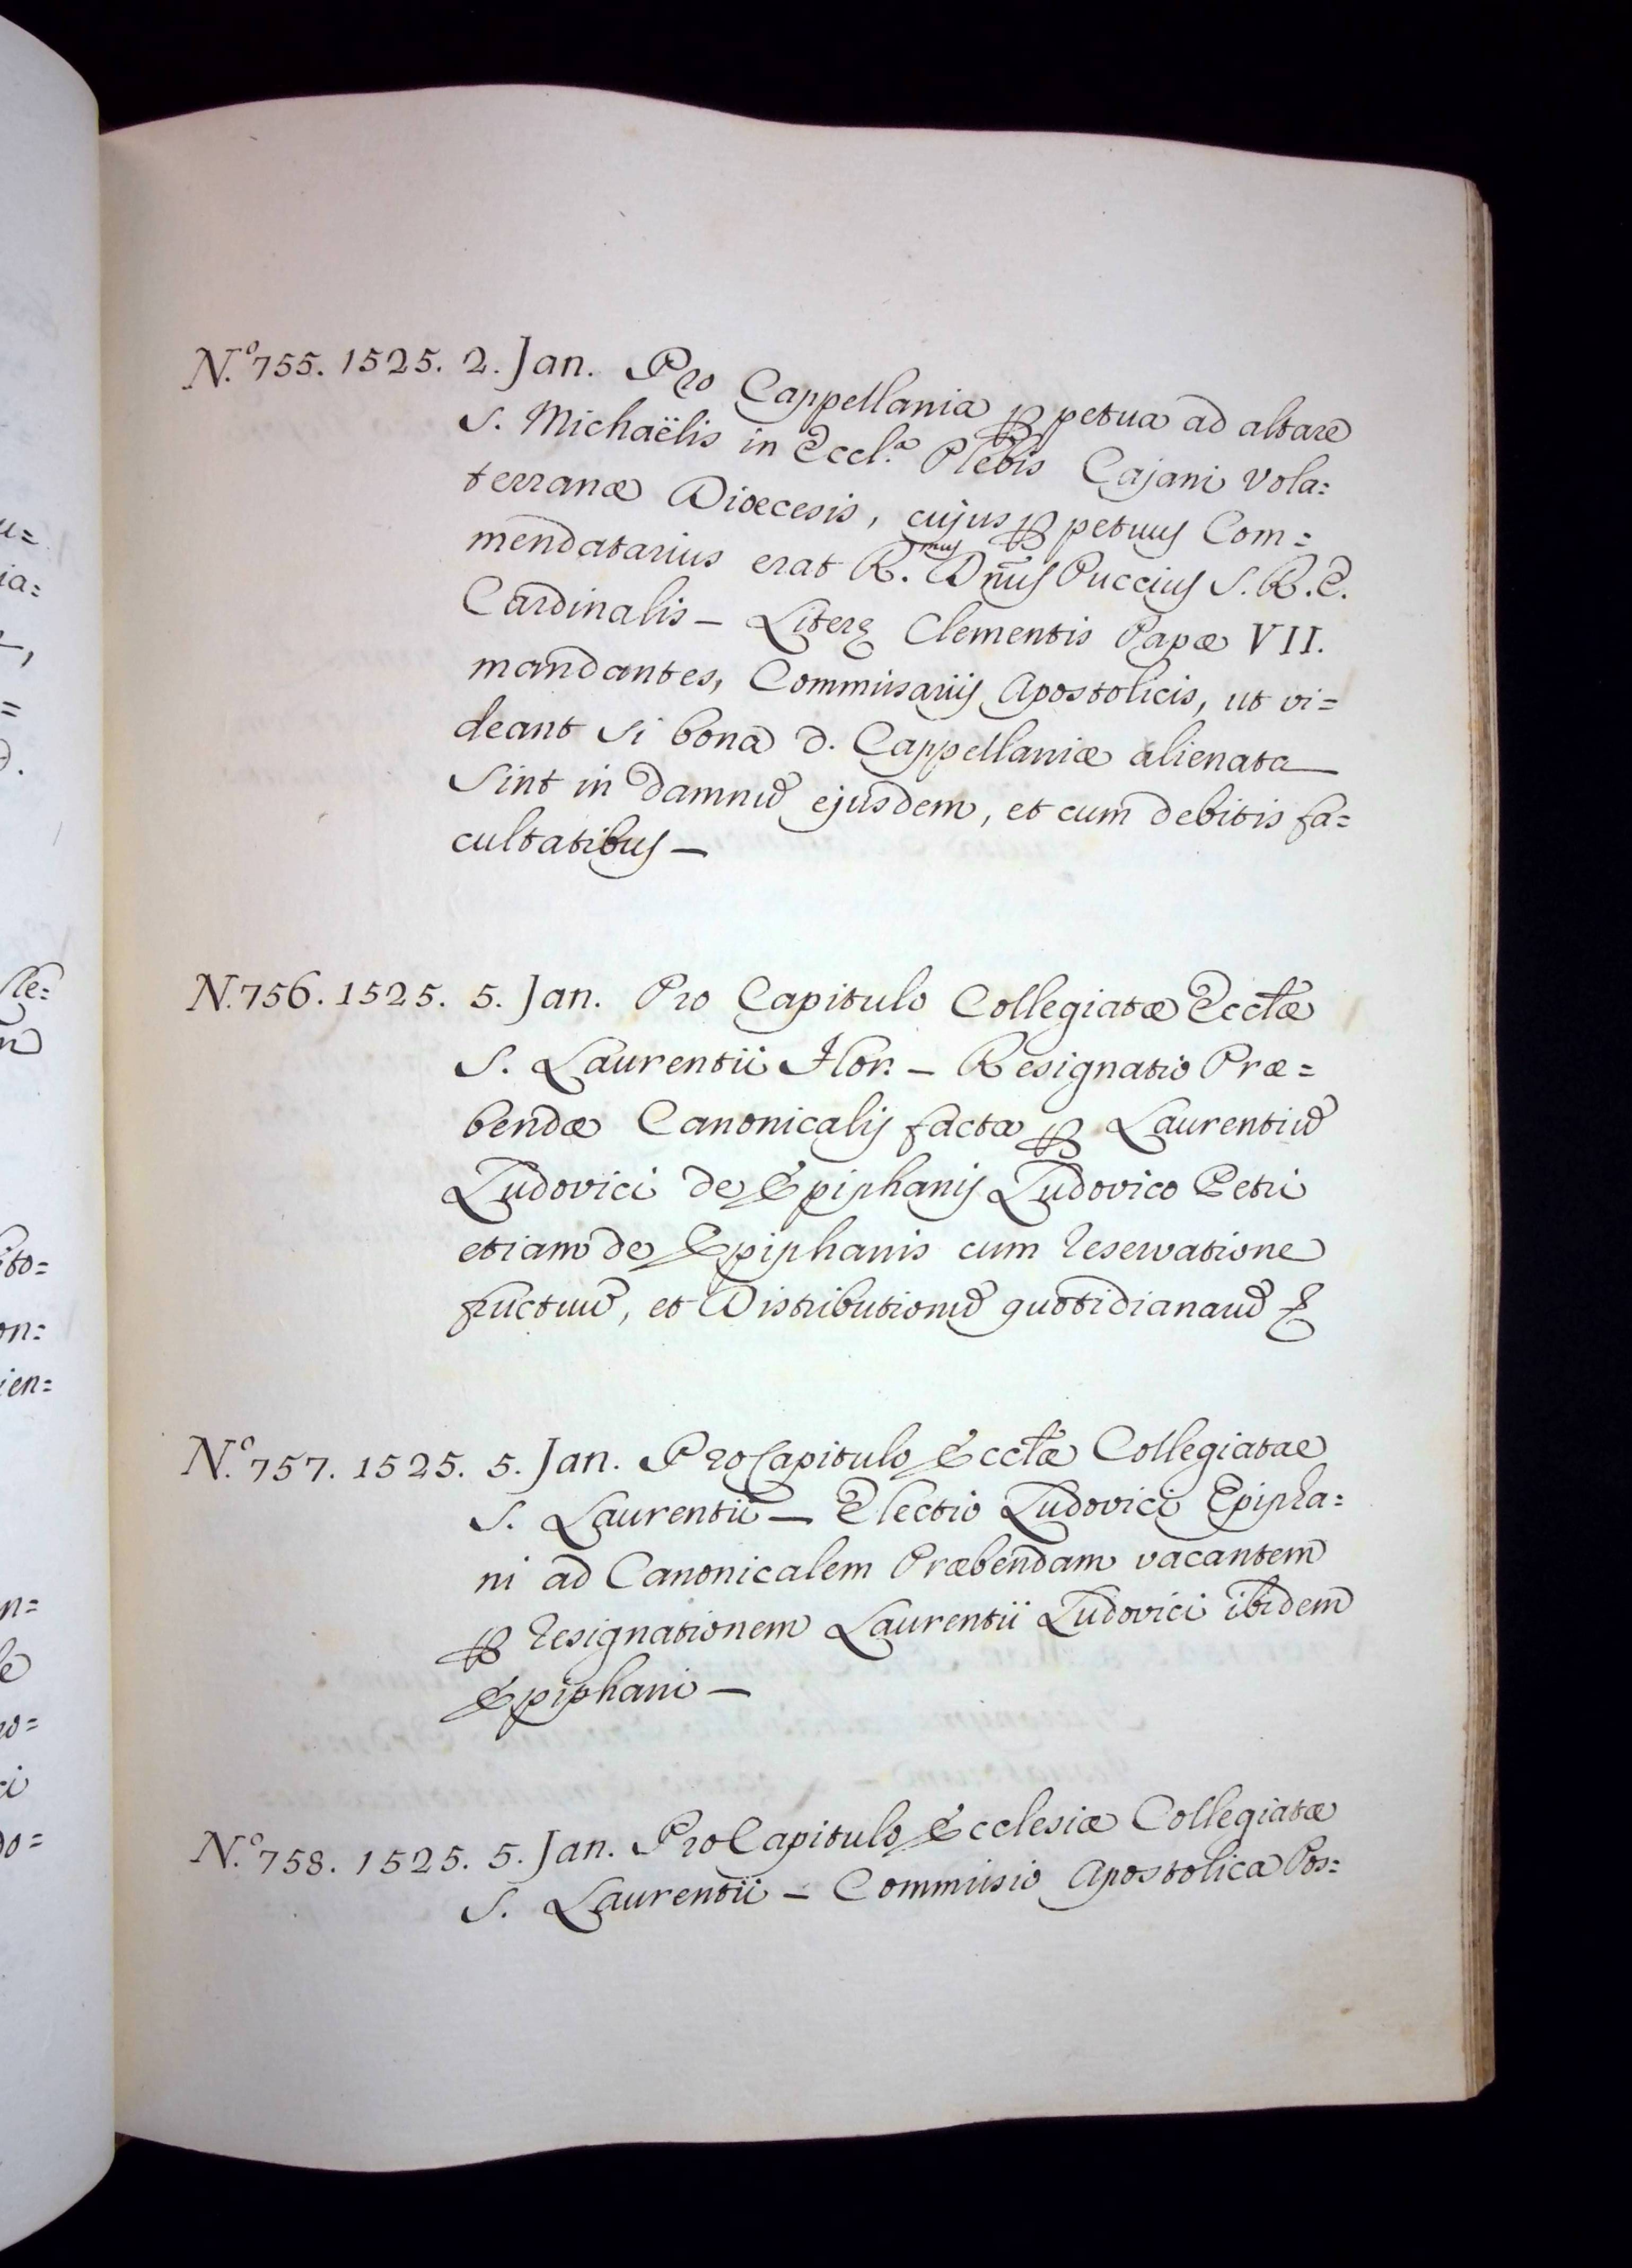 N.º 755. 1525. 2. Jan. Pro Cappellania ꝑpetua ad altare
S. Michaëlis in Eccl.ª Plebis Cajani Vola=
terranæ Diœcesis, cujus ꝑpetuus Com=
mendatarius erat R.mus Dñus Puccius S. R. E.
Cardinalis – Literę Clementis Papæ VII.
mandantes, Commissariis Apostolicis, ut vi=
deant si bona d. Cappellaniæ alienata
Sint in damnũ ejusdem, et cum debitis fa=
cultatibus –
N. 756. 1525. 5. Jan. Pro Capitulo Collegiatæ Eccłæ
S. Laurentii Flor. – Resignatio Præ=
bendæ Canonicalis facta ꝑ Laurentiũ
Ludovici de Epiphanis Ludovico Petri
etiam de Epiphanis cum reservatione
fructuũ, et Distributionũ quotidianarũ &
N.º 757. 1525. 5. Jan. Pro Capitulo Eccłæ Collegiatae
S. Laurentii – Electio Ludovici Epipha=
ni ad Canonicalem Præbendam vacantem
ꝑ resignationem Laurentii Ludovici ibidem
Epiphani –
N.º 758. 1525. 5. Jan. Pro Capitulo Ecclesiæ Collegiatæ
S. Laurentii – Commissio Apostolica Pos=